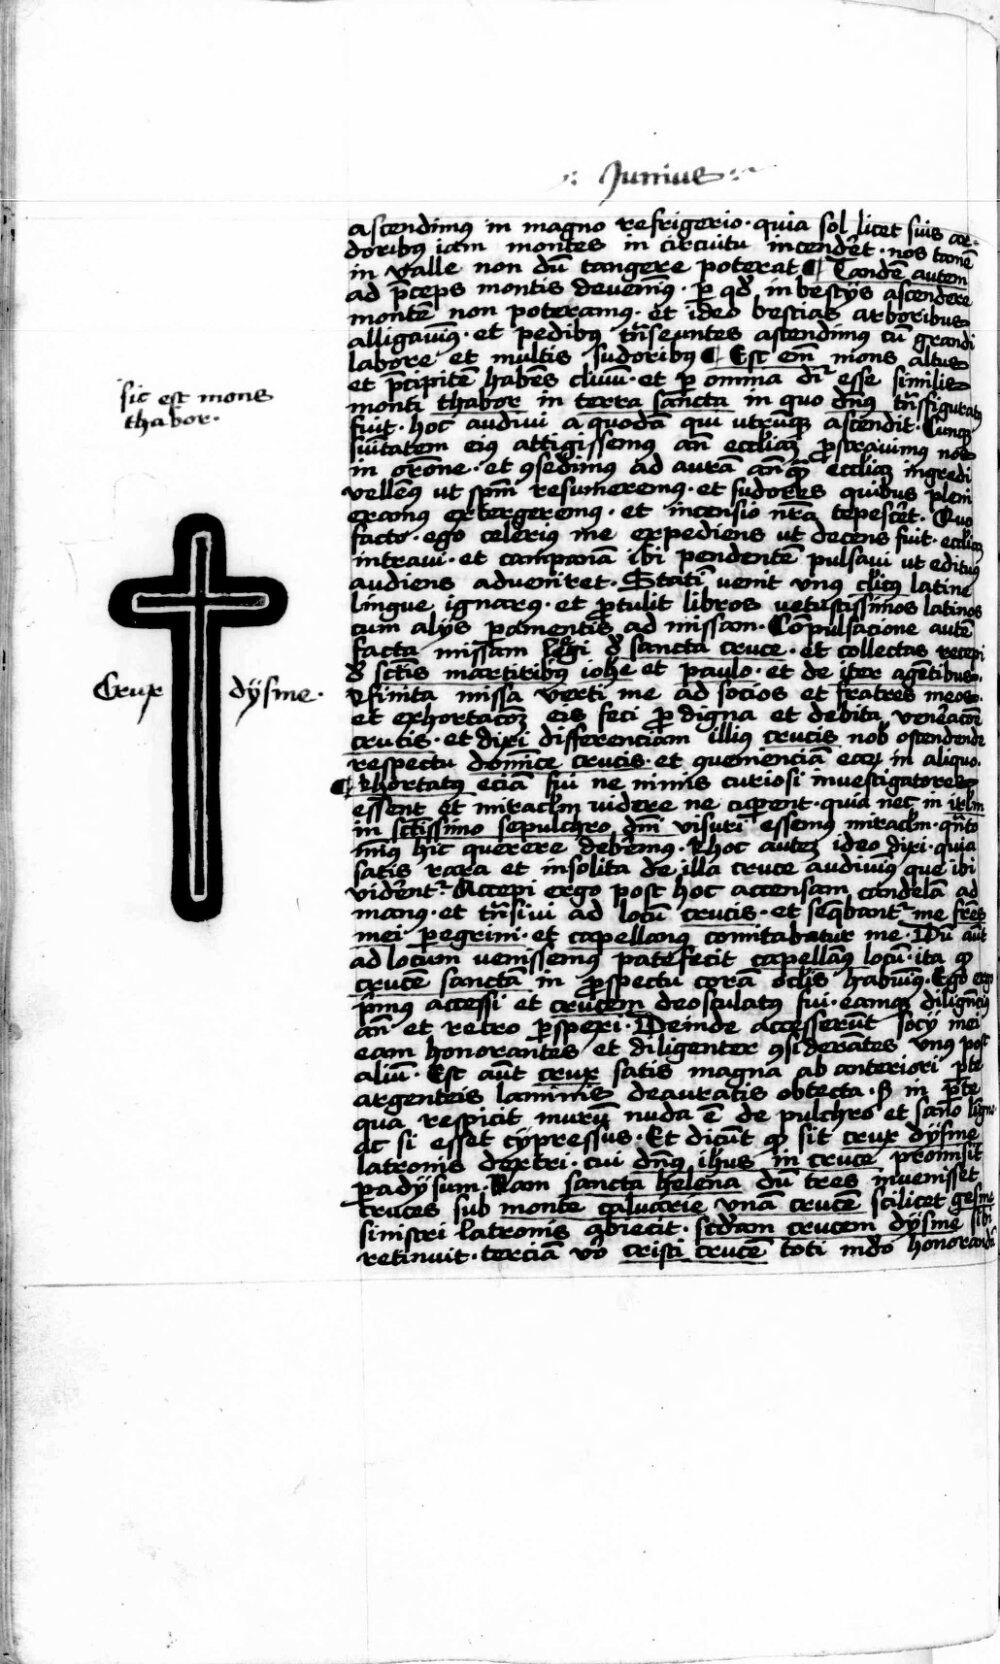 Junius
ascendimus in magno refrigerio · quia sol licet suis ca-
doribus iam montes in circuitu incenderet · nos tamē
in valle non dū tangere poterat ¶ Tandē autem
ad p̄ceps montis devenimꝰ · p qd' in bestijs ascendere
montē non poteramꝰ · et ideo bestias arboribus
alligavimꝰ · et pedibꝰ trāseuntes ascendimꝰ cū grandi
labore et multis sudoribꝰ ¶ Est em̄ mons altus
et p̄cipitē habēs clivum · et p omnia dr̄ esse similis
monti thabor in terra sancta in quo dn̄s trāsfiguratꝰ
fuit · hoc audivi a quodā qui utrumqꝫ ascendit · Cumqꝫ
sūitatem eiꝰ attigissemꝰ an̄ eccliam prostravimus nos
in orōne · et ꝯsedimus ad aurā an̄qꝫ ecclīaꝫ ingredi
vellemꝰ ut spm̄ resumeremꝰ · et sudores quibus pleni
eramꝰ extergeremꝰ · et incensio nr̄a tepescēt · Quo
facto · ego celerius me expediens ut decens fuit · eccliaꝫ
intravi · et campanā ibi pendentē pulsavi ut edituꝰ
audiens adveniret · Statī venit unꝰ cl'icꝰ latine
lingue ignarꝰ · et p̄tulit libros vetustissimos latinos
cum alijs pamentis ad missam · Cōpulsacione autē
facta missam legi d' sancta cruce · et collectas recepi
d' sctīs martiribꝰ iohē et paulo · et de iter agētibus ·
Et finita missa verti me ad socios et fratres meos ·
et exhortacōeꝫ eis feci p digna et debita venēacōe
crucis · et dixi differenciam illiꝰ crucis nob ostendende
respectu dominice crucis · et ꝯvenienciā eaꝝ in aliquo ·
¶ Rhortatꝰ eciā fui ne nimis curiosi investigatores
essent et miraclm̄ videre ne cuperent · quia nec in irl̄m
in sctīssimo sepulchro dn̄i visuri essemꝰ miraclm̄ · q̄nto
minꝰ hic querere debemꝰ · Rhoc auteꝫ ideo dixi · quia
satis rara et insolita de illa cruce audivimꝰ que ibi
vidēntr · Accepi ergo post hoc accensam candelā ad
manꝰ · et trāsivi ad locū crucis · et seq̄bantr me frēs
mei peregrini · et capellanꝰ comitabatur me · Dū aūt
ad locum venissemꝰ patefecit capellanꝰ locū · ita qꝫ
crucē sanctā in prospectu corā oclis habuimꝰ · Ego ergo
p̄mꝰ accessi et crucem deosculatꝰ fui · eamqꝫ diligenciꝰ
an̄ et retro pspexi · Deinde accesserūt socij mei
eam honorantes et diligenter ꝯsiderātes unꝰ post
aliū · Est aūt crux satis magna ab anteriori pte
argenteis laminis deauratis obtecta · sꝫ in pte
qua respicit murū nuda ē de pulchro et sano ligno
ac si esset cypressus · Et dicūt qꝫ sit crux dysme
latronis dextri · cui dn̄s ihūs in cruce promisit
padysum · Nam sancta helena dū tres invenisset
cruces sub monte calvarie unā crucē scilicet gesme
sinistri latronis abiecit · scd'am crucem dysme sibi
retinuit · terciā v'o cristi crucē toti mūdo honorandā
sic est mons
thabor ·
Crux dysme ·